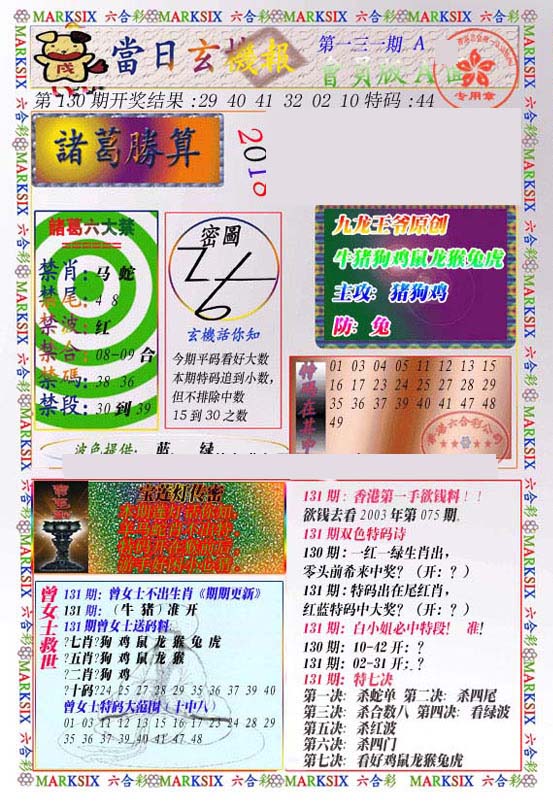 MARKSIX 六合彩 MARKSIX 六合彩 MARKSIX 六合彩 MARKSIX 六合彩
當日玄機報
第一三一期 A
會員版A面
专用章
第 130 期开奖结果 :29 40 41 32 02 10 特码 :44
諸葛勝算
2010
諸葛六大禁
禁肖:马 蛇
禁尾:4 8
禁波:红
禁合:08-09 合
禁碼:38 36
禁段:30 到 39
密圖
玄機話你知
今期平码看好大数
本期特码追到小数,
但不排除中数
15 到 30 之数
九龙王爷原创
牛猪狗鸡鼠龙猴兔虎
主攻: 猪狗鸡
防: 兔
01 03 04 05 11 12 13 15
16 17 23 24 25 27 28 29
35 36 37 39 40 41 47 48
49
波色提供: 蓝 绿
宝莲灯传密
131 期: 香港第一手欲钱料！！
欲钱去看 2003 年第 075 期.
131 期双色特码诗
130 期: 一红一绿生肖出,
零头前希来中奖? (开: ? )
131 期: 特码出在尾红肖,
红蓝特码中大奖? (开: ? )
131 期: 白小姐必中特段! 准!
130 期: 10-42 开: ?
131 期: 02-31 开: ?
131 期: 特七决
第一决: 杀蛇单 第二决: 杀四尾
第三决: 杀合数八 第四决: 看绿波
第五决: 杀红波
第六决: 杀四门
第七决: 看好鸡鼠龙猴兔虎
曾女士救世
131 期: 曾女士不出生肖《期期更新》
131 期: (牛 猪) 准 开
131 期曾女士送码料:
?七肖?狗 鸡 鼠 龙 猴 兔 虎
?五肖?狗 鸡 鼠 龙 猴
?二肖?狗 鸡
?十码?24 25 27 28 29 35 36 37 39 40
曾女士特码大范围 (十中八)
01 03 11 12 13 15 16 17 23 24 28 29
35 36 37 39 40 41 47 48
MARKSIX 六合彩 MARKSIX 六合彩 MARKSIX 六合彩 MARKSIX 六合彩